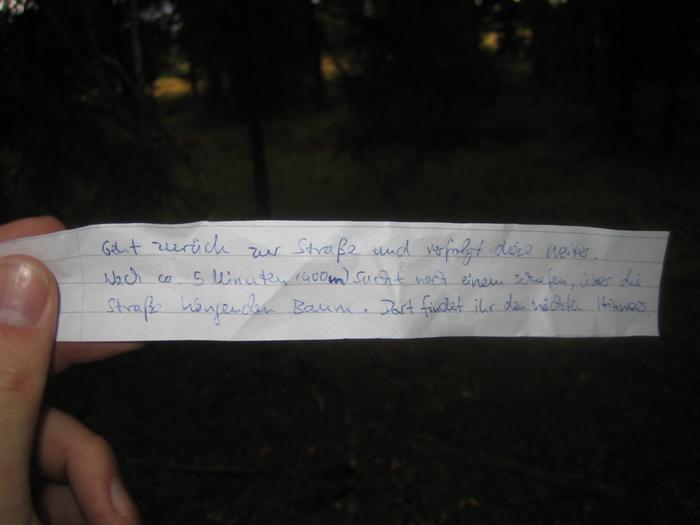 Geht zurück zur Straße und verfolgt diese weiter.
Nach ca. 5 Minuten (400m) sucht nach einem schiefen, über die
Straße hängenden Baum. Dort findet ihr den nächsten Hinweis.